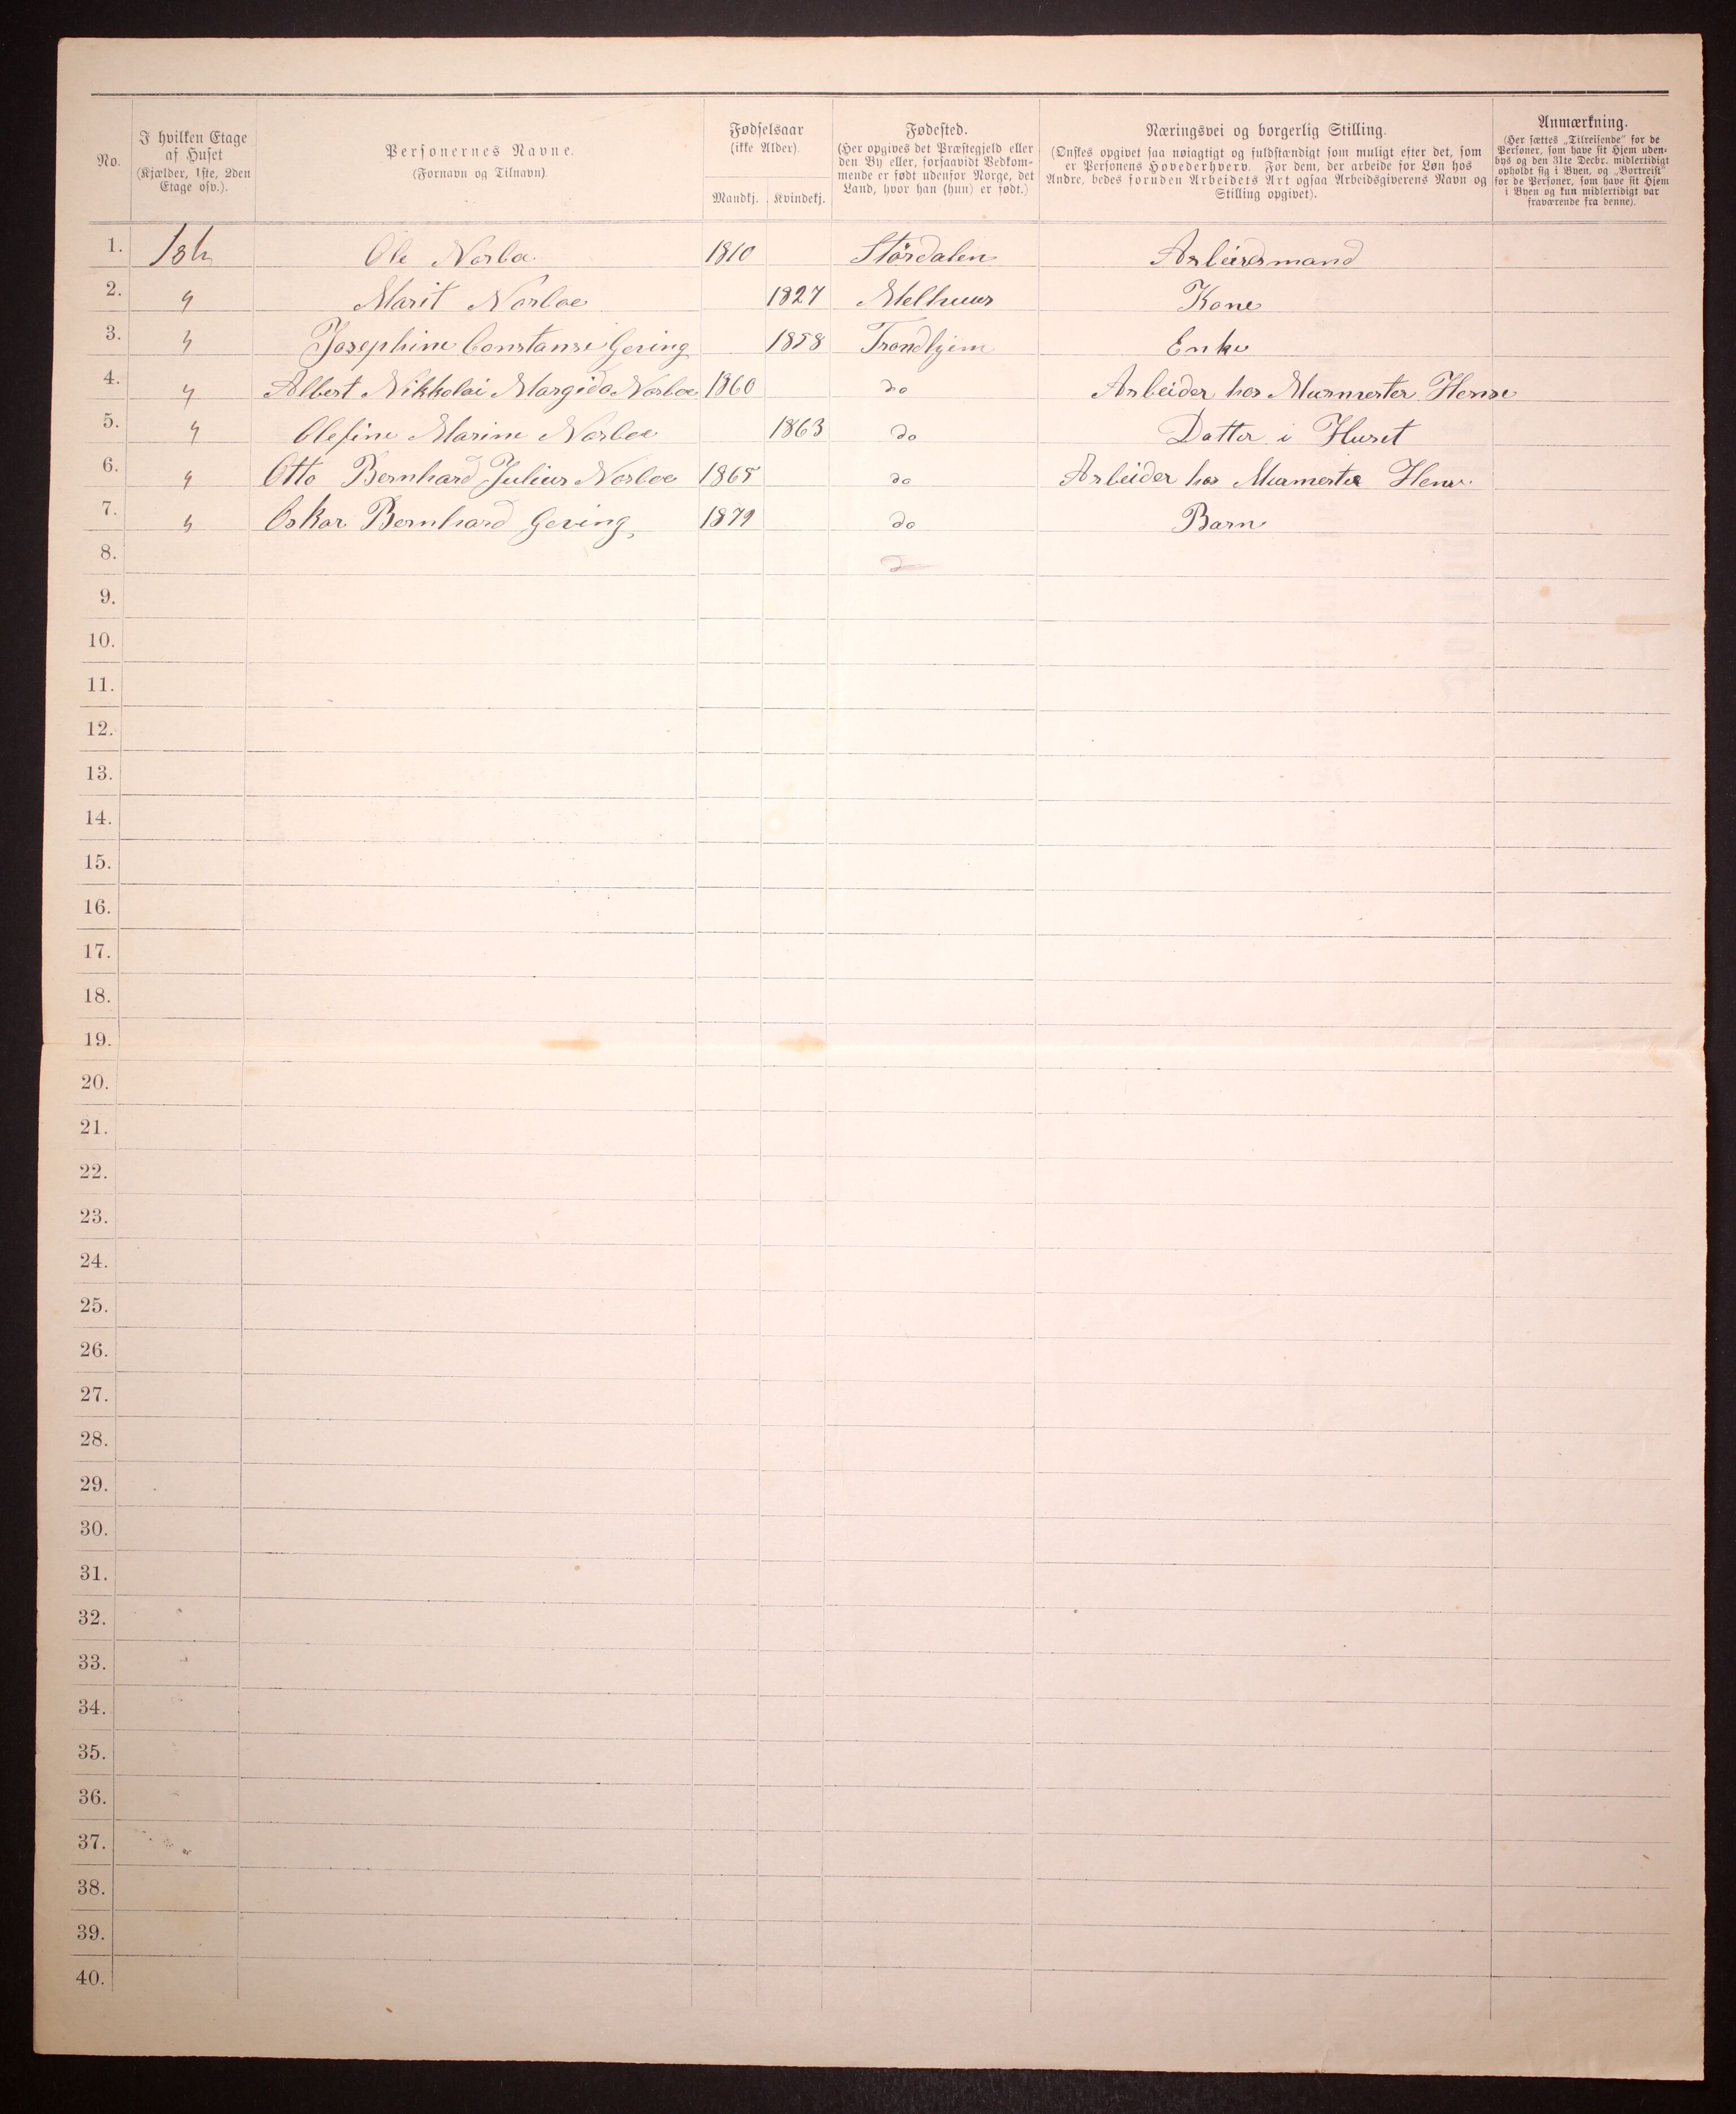 No.
I hvilken Etage
af Huset
(Kjælder, 1ste, 2den
Etage osv.).
Personernes Navne.
(Fornavn og Tilnavn).
Fødselsaar
(ikke Alder).
Mandkj. Kvindekj.
Fødested.
(Her opgives det Præstegjeld eller
den By eller, forsaavidt Vedkom-
mende er født udenfor Norge, det
Land, hvor han (hun) er født.)
Næringsvei og borgerlig Stilling.
(Ønskes opgivet saa nøiagtigt og fuldstændigt som muligt efter det, som
er Personens Hovederhverv. For dem, der arbeide for Løn hos
Andre, bedes foruden Arbeidets Art ogsaa Arbeidsgiverens Navn og
Stilling opgivet).
Anmærkning.
(Her sættes „Tilreisende" for de
Personer, som have sit Hjem uden-
bys og den 31te Decbr. midlertidigt
opholdt sig i Byen, og „Bortreist"
for de Personer, som have sit Hjem
i Byen og kun midlertidigt var
fraværende fra denne).
1. Ole Norbo 1810 Stördalen Arbeidsmand
2. " Marit Norboe 1827 Melhuus Kone
3. " Josephine Constanse Gering 1858 Trondhjem Enke
4. " Albert Nikkolai Margido Norboe 1860 do Arbeider hos Murmester
5. " Olefine Marine Norboe 1863 do Datter i Huset
6. " Otto Bernhard Julius Norboe 1865 do Arbeider hos Murmester
7. " Oskar Bernhard Gering 1879 do Barn
8.
9.
10.
11.
12.
13.
14.
15.
16.
17.
18.
19.
20.
21.
22.
23.
24.
25.
26.
27.
28.
29.
30.
31.
32.
33.
34.
35.
36.
37.
38.
39.
40.